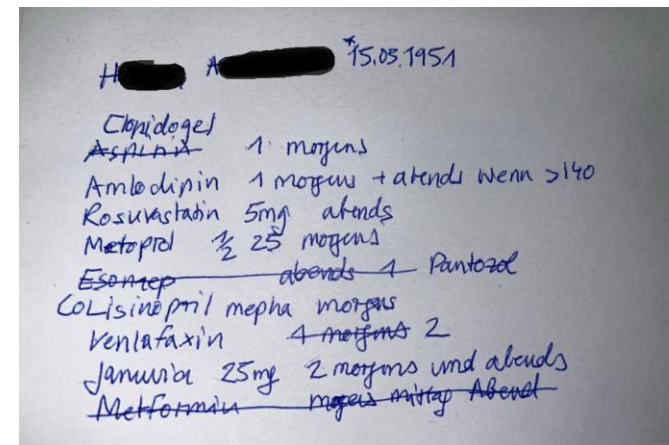 H A *15.03.1951
Clopidogel
Aspirin 1 morgens
Amlodipin 1 morgens + abends wenn >140
Rosuvastatin 5mg abends
Metoprol 1/2 25 morgens
Esomep abends 1 Pantozol
CoLisinopril mepha morgens
Venlafaxin 4 morgens 2
Januvia 25mg 2 morgens und abends
Metformin morgens mittag Abend